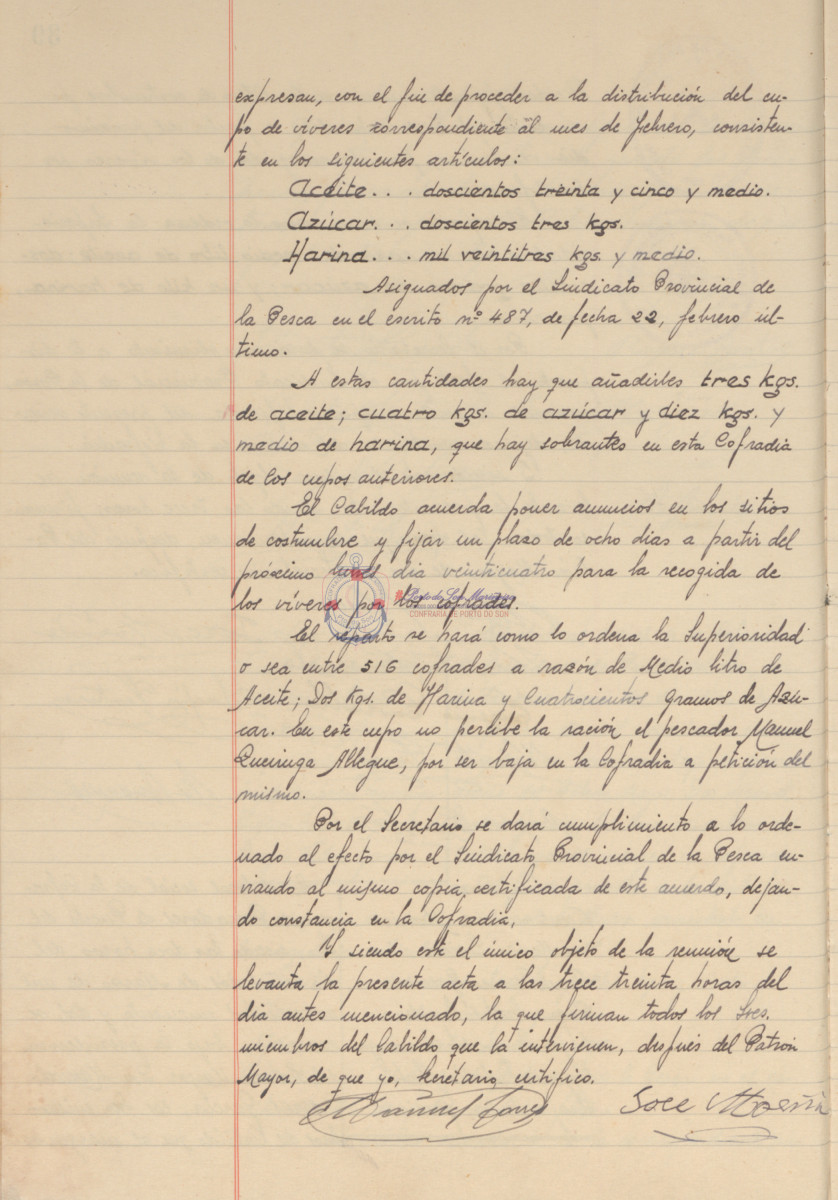 expresan, con el fin de proceder a la distribución del cu-
po de víveres correspondiente al mes de febrero, consisten-
te en los siguientes artículos:
Aceite . . . doscientos treinta y cinco y medio.
Azúcar. . . doscientos tres kgs.
Harina . . . mil veintitres kgs. y medio.
Asignados por el Sindicato Provincial de
la Pesca en el escrito nº 487, de fecha 22, febrero úl-
timo.
A estas cantidades hay que añadirles tres kgs.
de aceite; cuatro kgs. de azúcar y diez kgs. y
medio de harina, que hay sobrantes en esta Cofradia
de los cupos anteriores.
El Cabildo acuerda poner anuncios en los sitios
de costumbre y fijar un plazo de ocho dias a partir del
próximo lunes dia veinticuatro para la recogida de
los víveres por los cofrades.
CONFRARÍA DE PORTO DO SON
El reparto se hará como lo ordena la Superioridad
o sea entre 516 cofrades a razón de Medio litro de
Aceite; Dos kgs. de Harina y Cuatrocientos gramos de Azú-
car. En este cupo no percibe la ración el pescador Manuel
Queiruga Allegue, por ser baja en la Cofradia a petición del
mismo.
Por el Secretario se dará cumplimiento a lo orde-
nado al efecto por el Sindicato Provincial de la Pesca en-
viando al mismo copia certificada de este acuerdo, dejan-
do constancia en la Cofradia.
Y siendo este el único objeto de la reunión se
levanta la presente acta a las trece treinta horas del
dia antes mencionado, la que firman todos los Sres.
miembros del Cabildo que la intervienen, después del Patrón
Mayor, de que yo, Secretario certifico.
Manuel